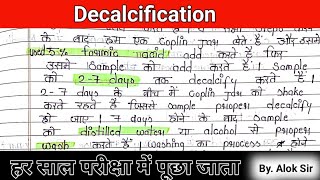 Decalcification
के बाद हम एक Coplin Jar लेते हैं और उसमें
used 5% Formic acid add करते हैं फिर
उसमें Sample को add करते हैं। Sample
को 2-7 days तक decalcify करते हैं।
2-7 days के बीच में Coplin Jar को Shake
करते रहते हैं जिससे Sample properl decalcify
हो जाए। 7 days होने के बाद Sample
को distilled water या alcohol से properl
wash करते हैं। washing का process
हर साल परीक्षा में पूछा जाता
By. Alok Sir